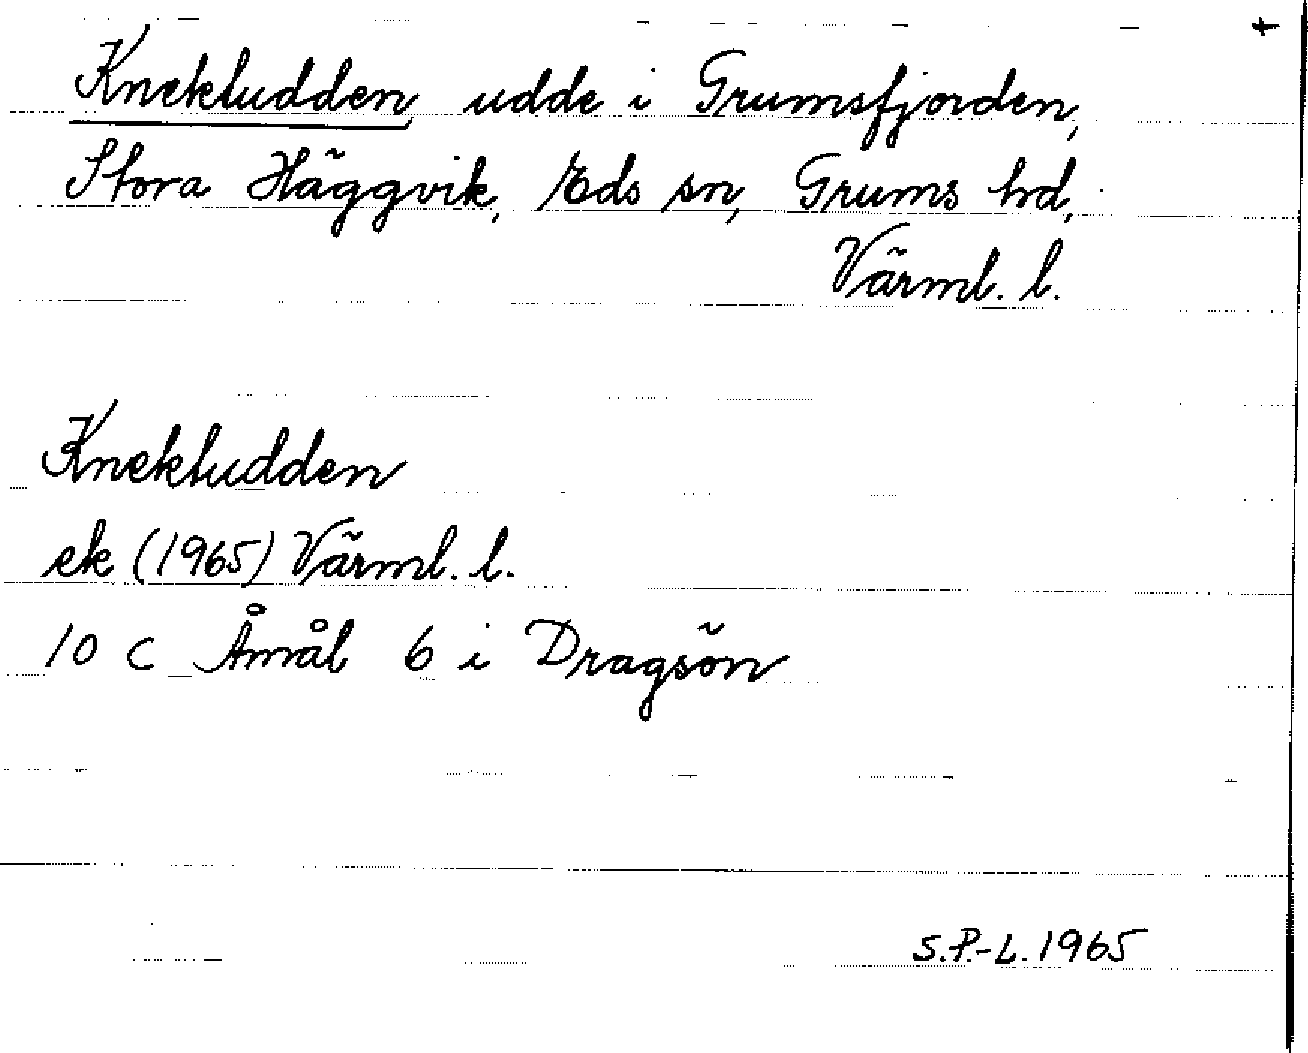 +
Knektudden udde i Grumsfjorden,
Stora Häggvik, Eds sn, Grums hd,
Värml. l.
Knektudden
ek (1965) Värml. l.
10 C Åmål 6 i Dragsön
S.P.-L. 1965